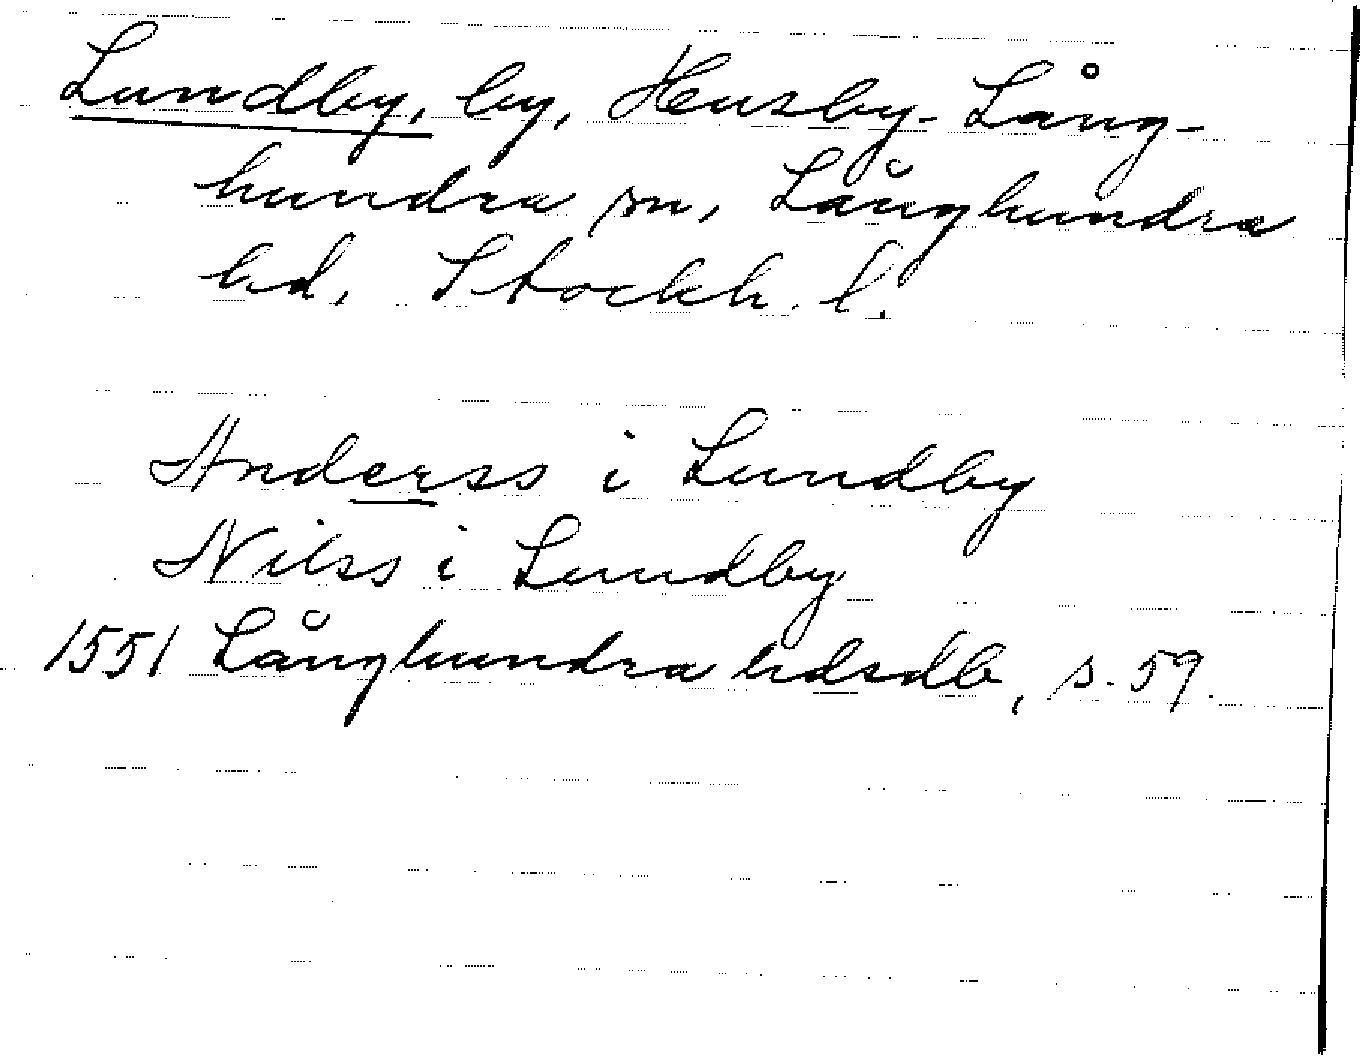 Lundby, by, Husby-Lång-
hundra sn, Långhundra
hd, Stockh. l.
Anderss i Lundby
Nilss i Lundby
1551 Långhundra hdsdb, s. 59.